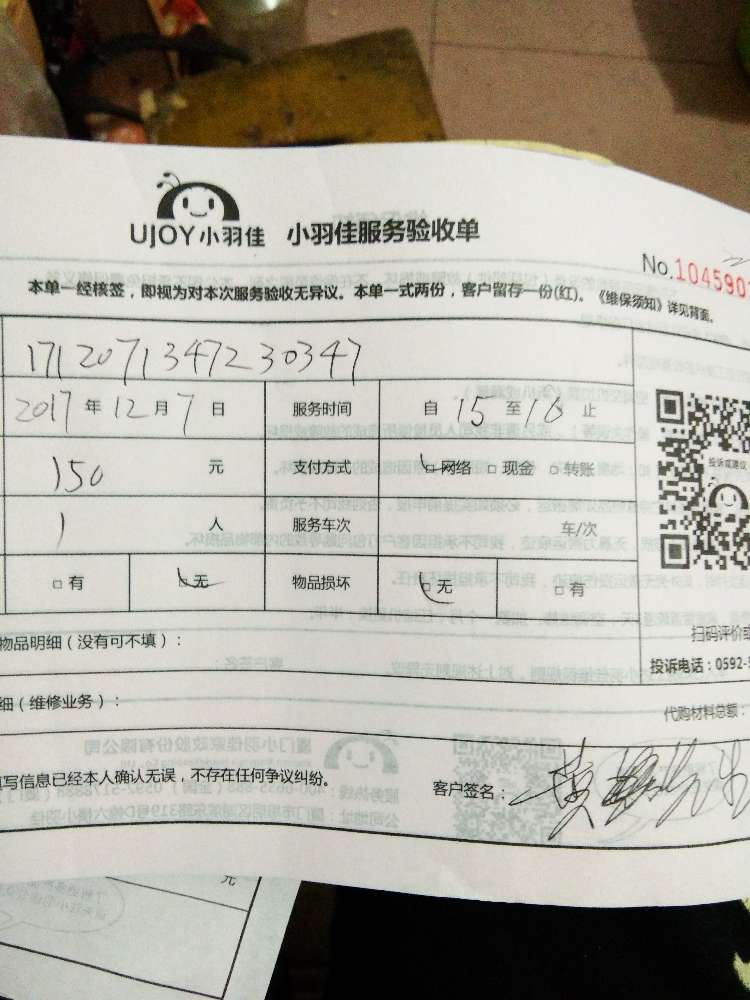 UJOY小羽佳 小羽佳服务验收单
No.104590
本单一经核签，即视为对本次服务验收无异议。本单一式两份，客户留存一份(红)。《维保须知》详见背面。
1712071347230347
2017年12月7日 服务时间 自15至16止
150 元 支付方式 □网络 □现金 □转账
投诉或建议
1 人 服务车次 车/次
□有 □无 物品损坏 □无 □有
扫码评价或
物品明细（没有可不填）：
投诉电话：0592-
细（维修业务）：
代购材料总额：
写信息已经本人确认无误，不存在任何争议纠纷。
客户签名：黄
元